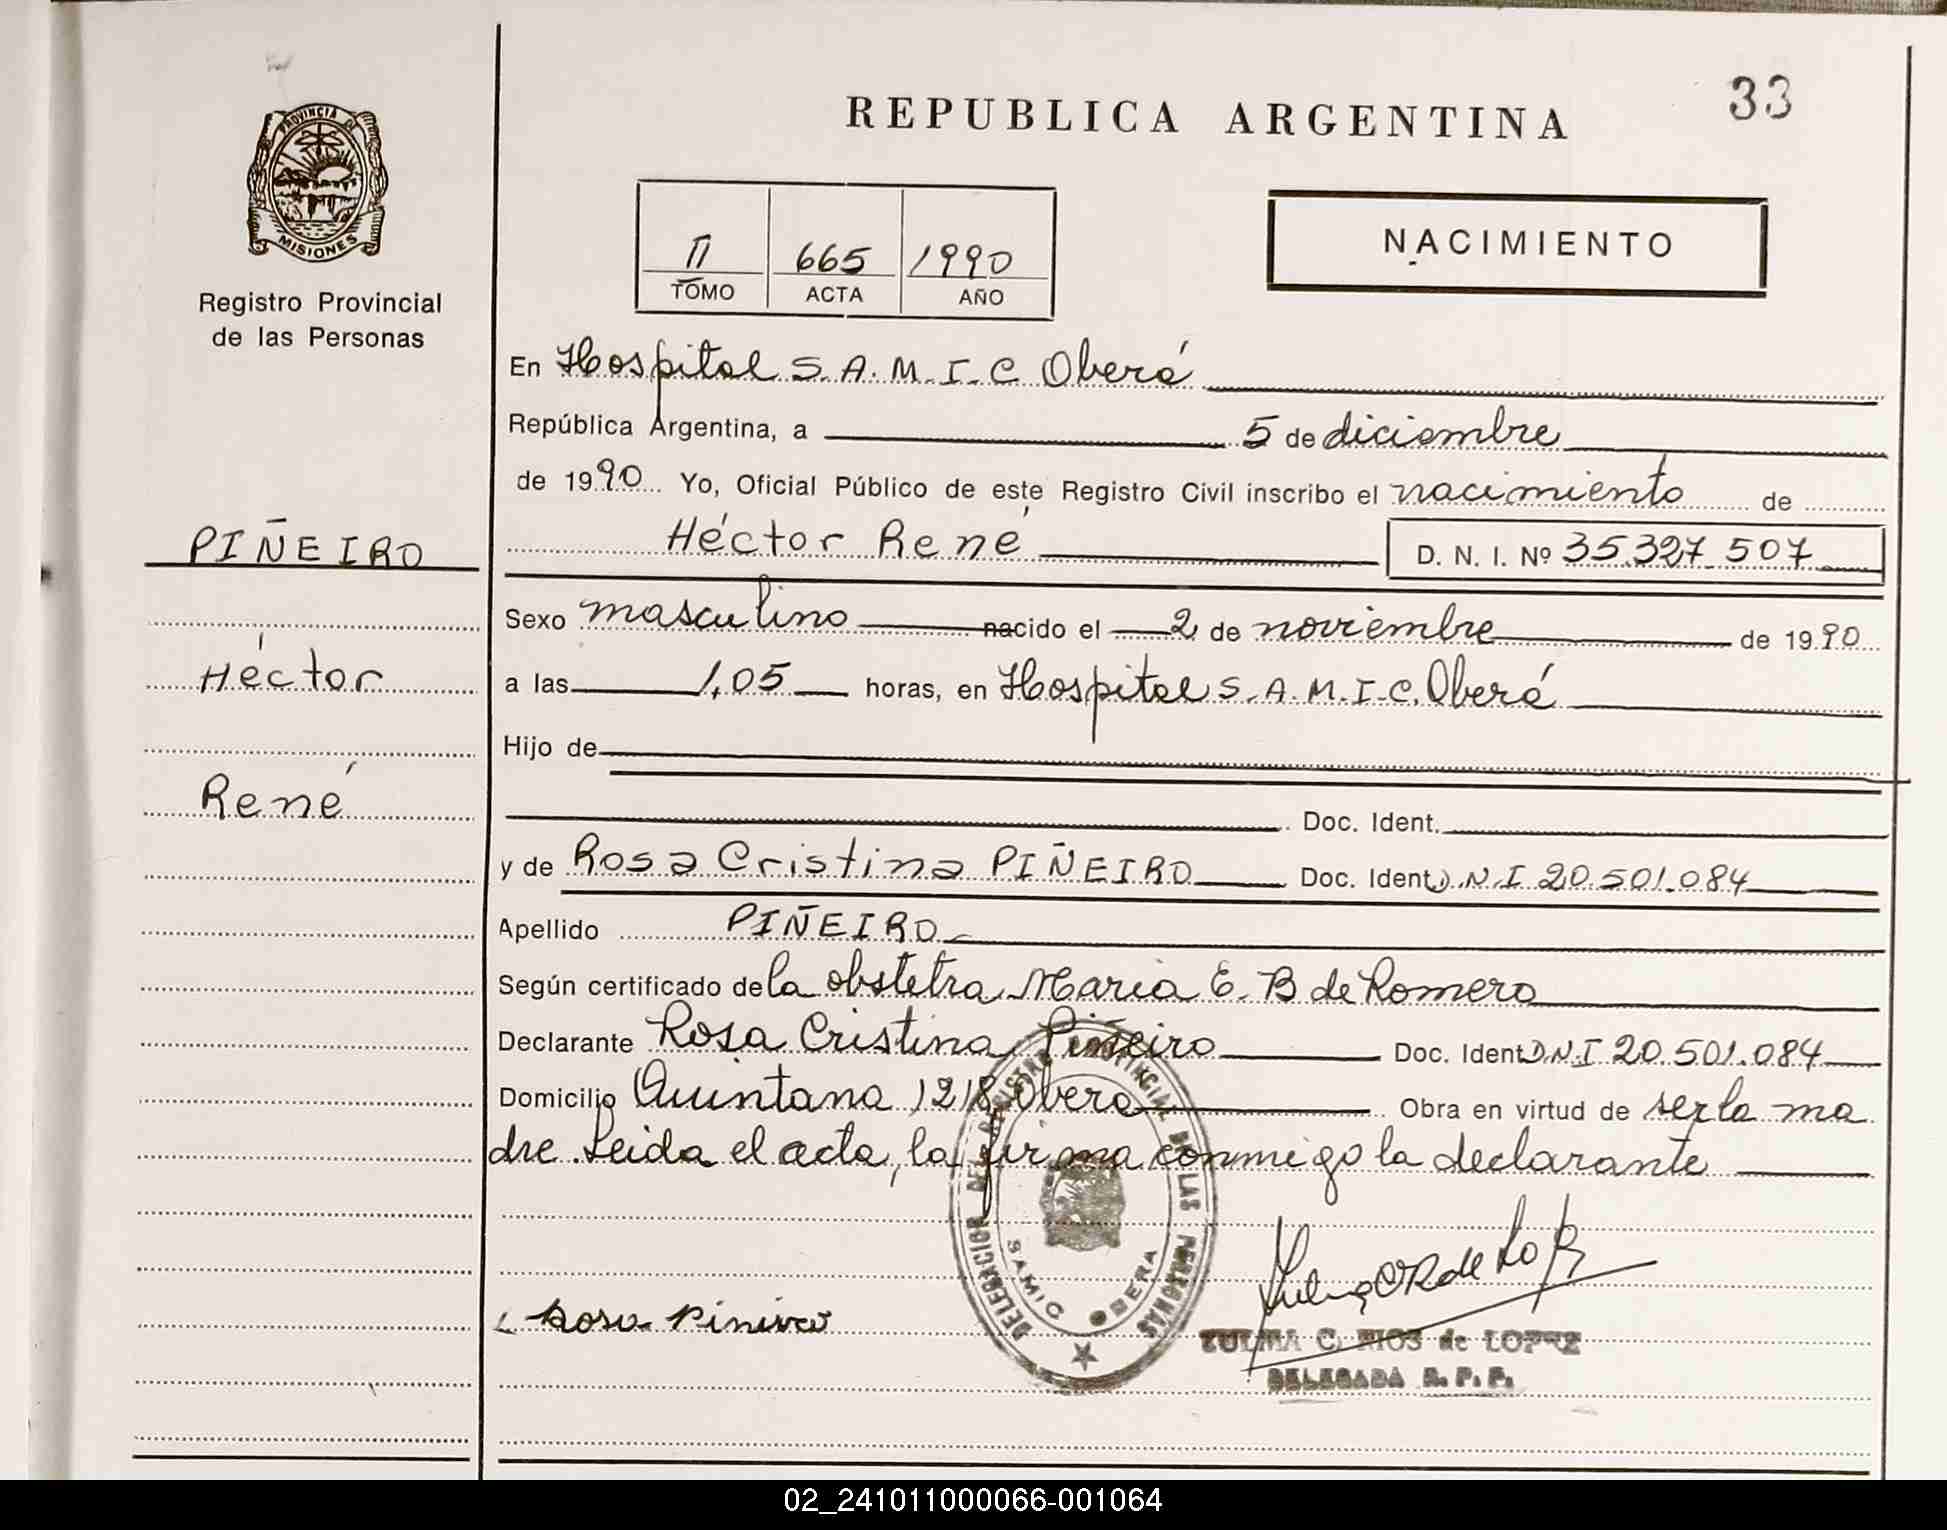 33
REPUBLICA ARGENTINA
PROVINCIA DE
MISIONES
Registro Provincial
de las Personas
II 665 1990
TOMO ACTA AÑO
NACIMIENTO
En Hospital S.A.M.I.C. Oberá
República Argentina, a 5 de diciembre
de 1990 Yo, Oficial Público de este Registro Civil inscribo el nacimiento de
Héctor René D. N. I. Nº 35.327.507
PIÑEIRO
Héctor
René
Sexo masculino nacido el 2 de noviembre de 1990
a las 1,05 horas, en Hospital S.A.M.I.C. Oberá
Hijo de
Doc. Ident.
y de Rosa Cristina PIÑEIRO Doc. Ident. D.N.I 20.501.084
Apellido PIÑEIRO
Según certificado de la obstetra Maria E. B de Romero
Declarante Rosa Cristina Piñeiro Doc. Ident. D.N.I 20.501.084
Domicilio Quintana 1218, Obera Obra en virtud de ser la ma
dre. Leida el acta, la firma conmigo la declarante
DELEGACION DEL REGISTRO PROVINCIAL DE LAS PERSONAS
SAMIC OBERA
Rosa Pinirco
ZULMA C. RIOS de LOPEZ
DELEGADA R. P. P.
02_241011000066-001064